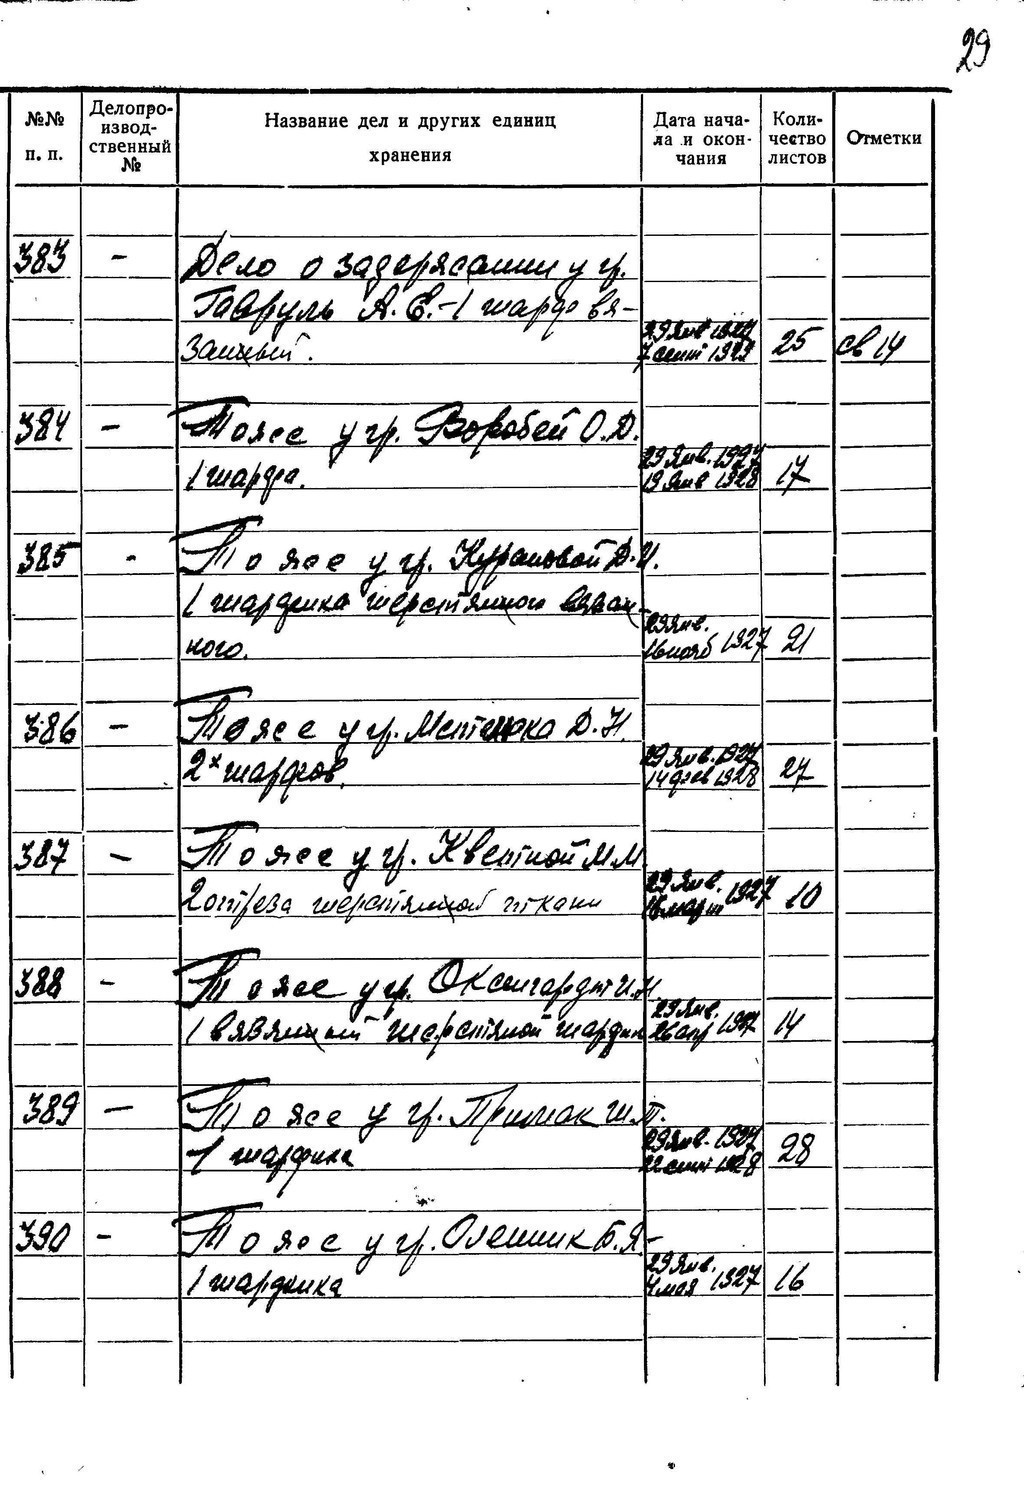 29
№№ п. п. Делопроизводственный № Название дел и других единиц хранения Дата начала и окончания Количество листов Отметки
383 - Дело о задержании у гр.
Гавруль А. Е. - 1 шарфа вя-
29 янв 1927
занный. 7 сент 1928 25 св 14
384 - То же у гр. Воробей О. Д.
29 янв. 1927
1 шарфа. 19 янв 1928 17
385 - То же у гр. Д. И.
1 шарфика шерстяного вязан-
29 янв.
ного. 16 нояб 1927 21
386 - То же у гр. Д. Н.
29 янв. 1927
2х шарфов. 14 фев 1928 27
387 - То же у гр. Квентной М. М.
29 янв.
2 отреза шерстяной ткани 16 март 1927 10
388 - То же у гр. И. Н.
29 янв.
1 вязанный шерстяной шарфик 26 апр 1927 14
389 - То же у гр. Примак Ш. П.
29 янв. 1927
1 шарфика 22 сент 1928 28
390 - То же у гр. Олешик Б. Я -
29 янв.
1 шарфика 4 мая 1927 16